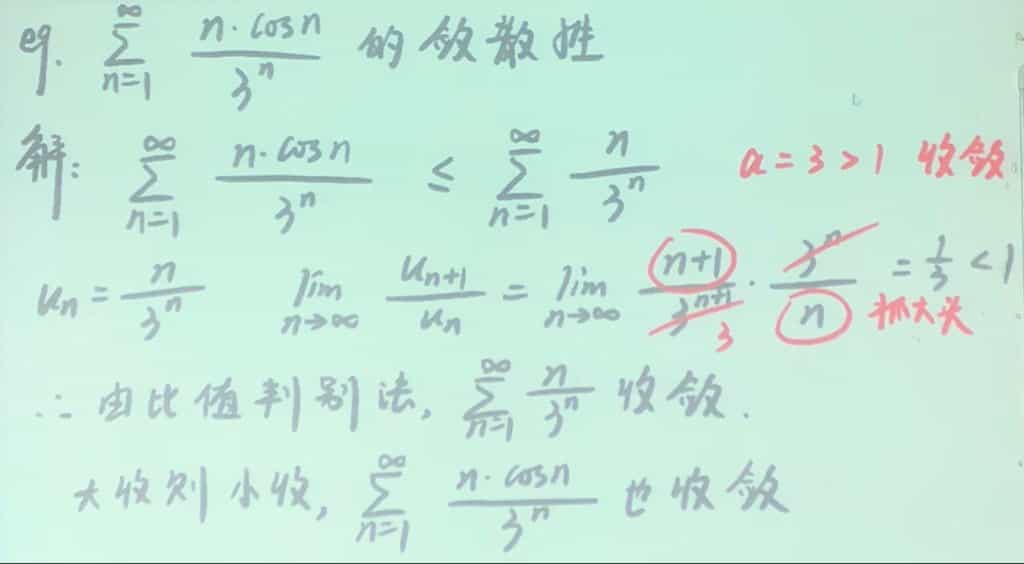 eg. ∑_{n=1}^{∞} \frac{n·cosn}{3^n} 的敛散性
解: ∑_{n=1}^{∞} \frac{n·cosn}{3^n} ≤ ∑_{n=1}^{∞} \frac{n}{3^n} a=3>1 收敛
u_n = \frac{n}{3^n} lim_{n→∞} \frac{u_{n+1}}{u_n} = lim_{n→∞} \frac{n+1}{3^{n+1}} · \frac{3^n}{n} = \frac{1}{3} < 1
3 抓大头
∴ 由比值判别法, ∑_{n=1}^{∞} \frac{n}{3^n} 收敛.
大收则小收, ∑_{n=1}^{∞} \frac{n·cosn}{3^n} 也收敛